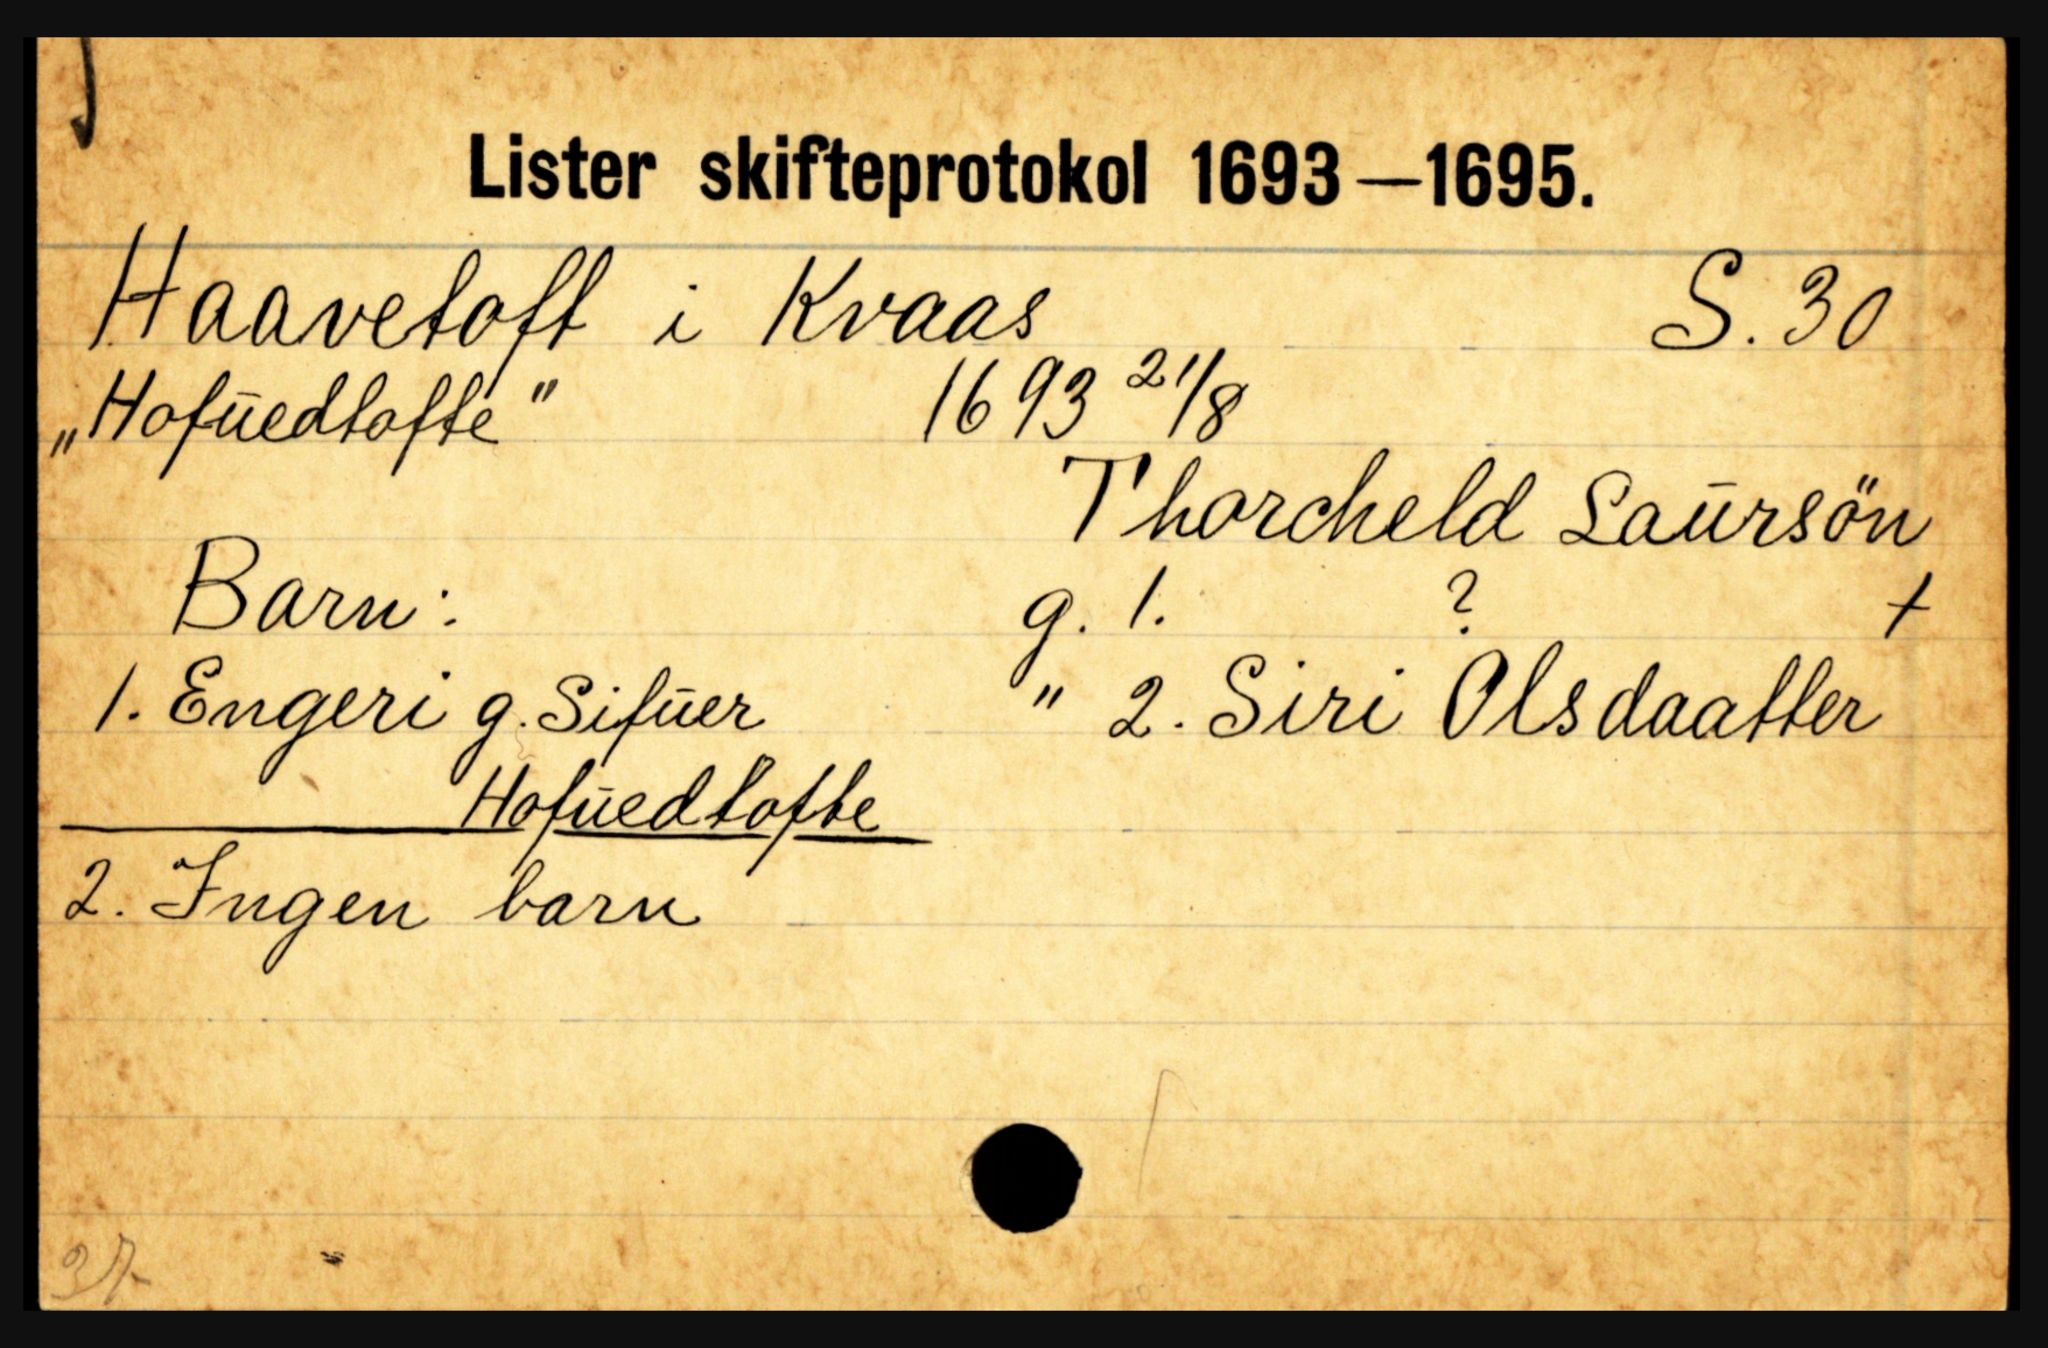 Lister skifteprotokol 1693—1695.
Haavetoft i Kvaas S. 30
„Hofŭedtofte" 1693 21/8
Thorcheld Laŭrsön
Barn: g. 1. ? +
1. Engeri g. Sifŭer " 2. Siri Olsdaatter
Hofŭedtofte
2. Ingen barn